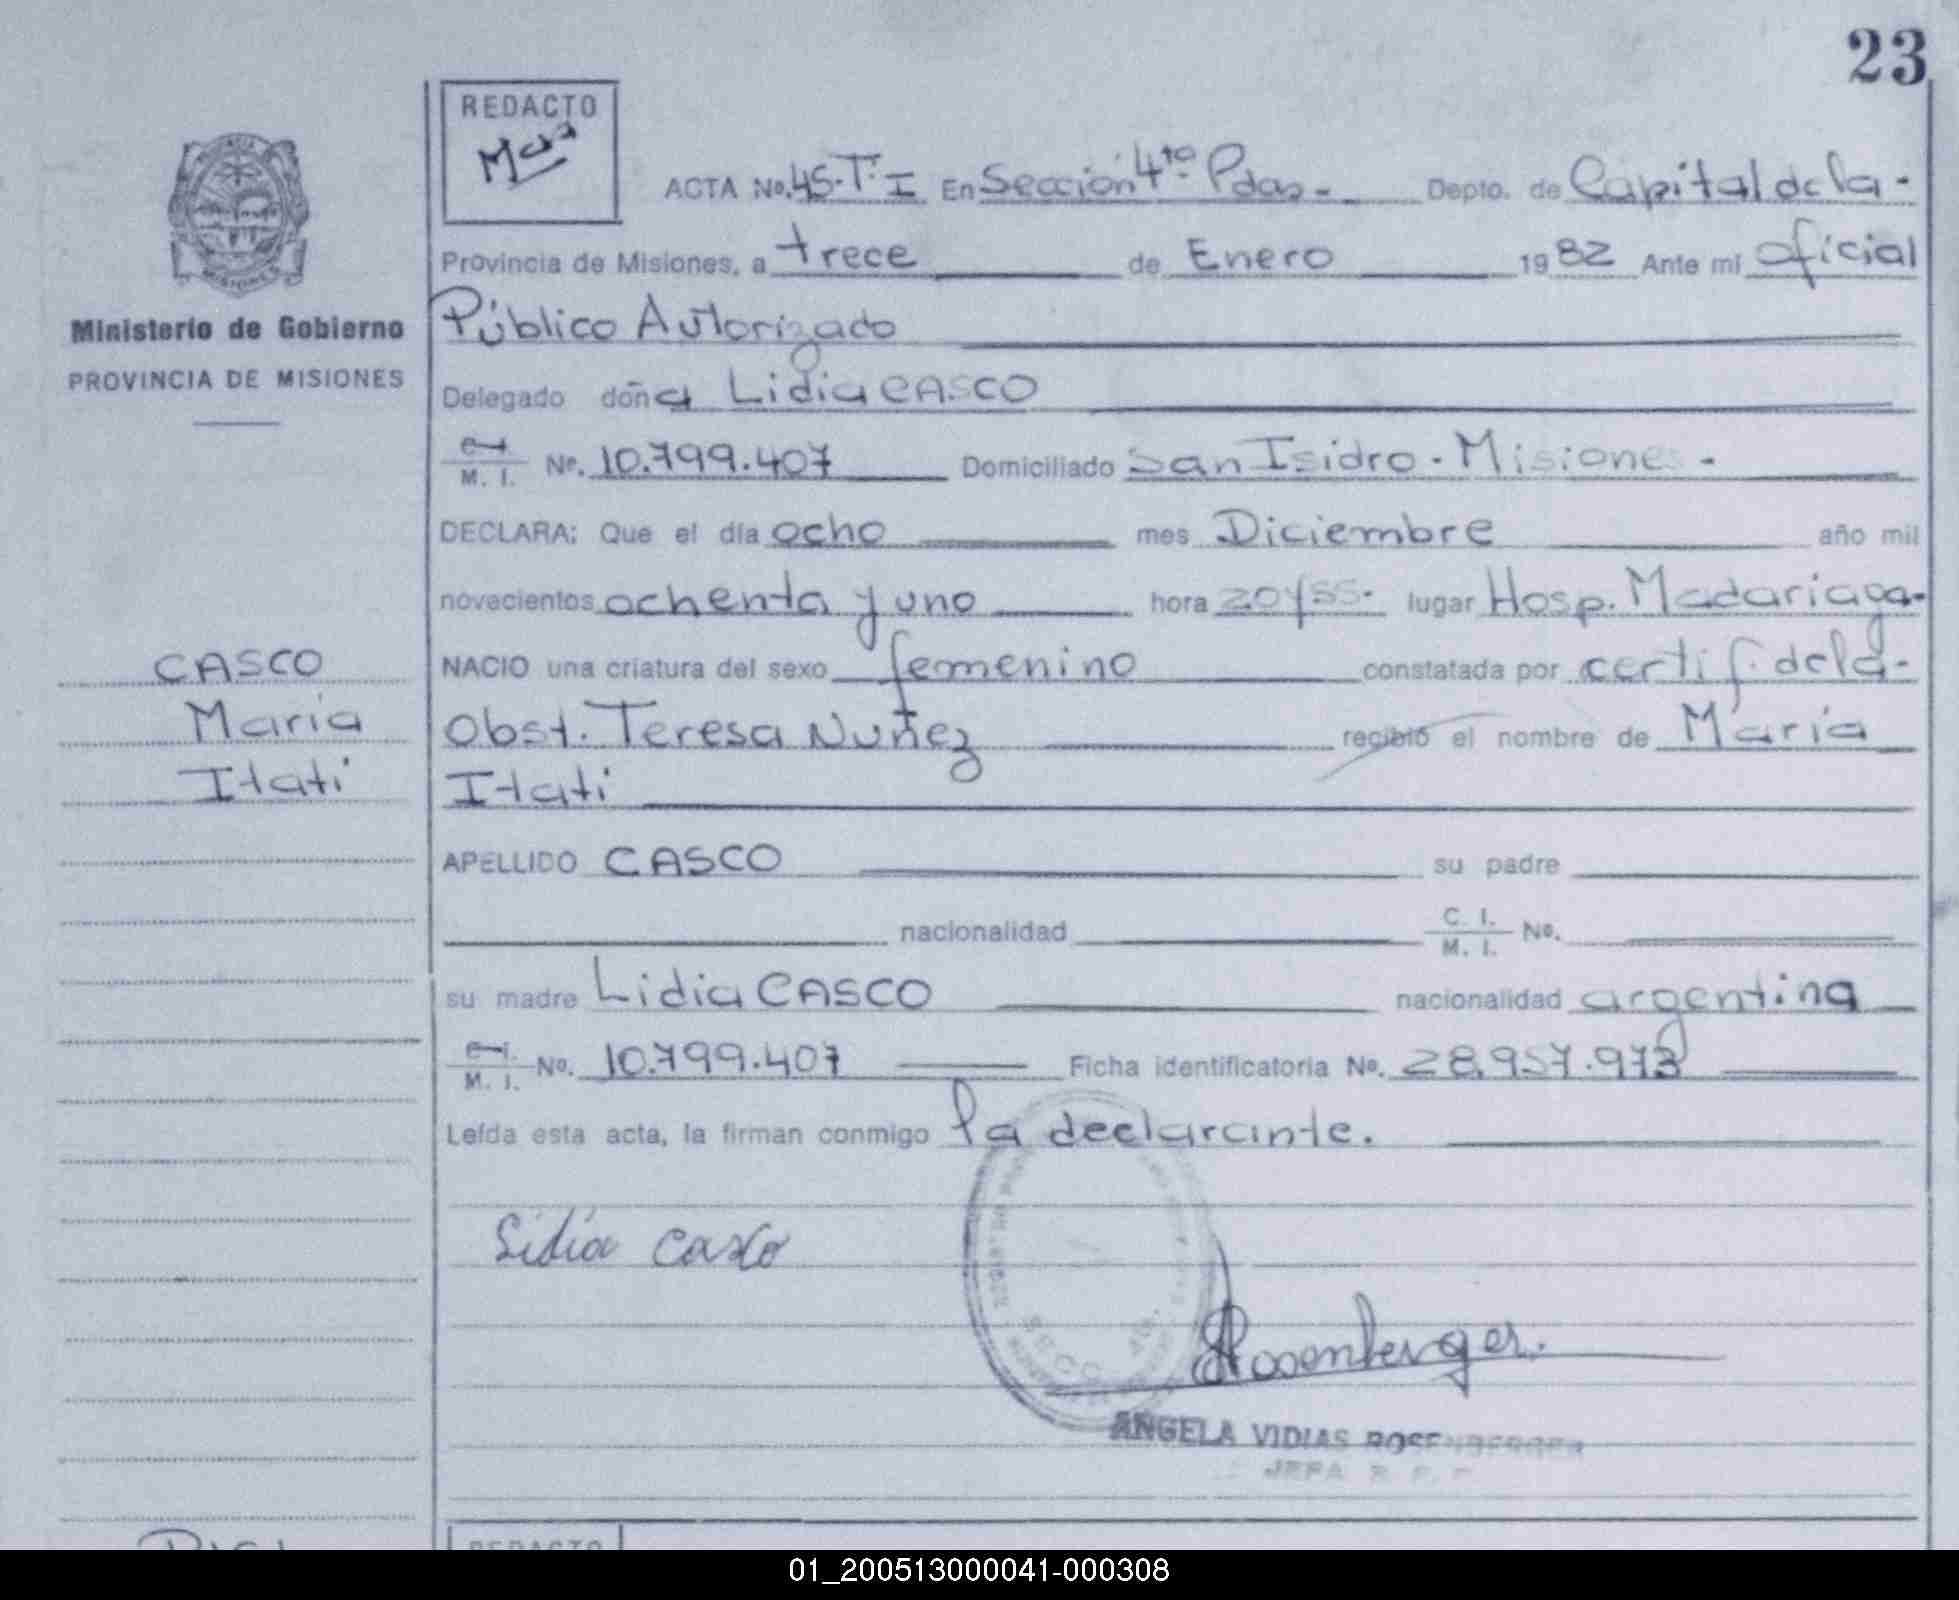 23
REDACTO
Mcra
PROVINCIA
MISIONES
Ministerio de Gobierno
PROVINCIA DE MISIONES
CASCO
María
Itatí
ACTA No. 45-T: I En Sección 4ta Pdas- Depto. de Capital de la-
Provincia de Misiones, a trece de Enero 1982 Ante mi oficial
Público Autorizado
Delegado doña Lidia CASCO
C.I. M. I. No. 10.799.407 Domiciliado San Isidro - Misiones -
DECLARA: Que el día ocho mes Diciembre año mil
novecientos ochenta y uno hora 20y55- lugar Hosp. Madariaga-
NACIO una criatura del sexo femenino constatada por certif. de la-
Obst. Teresa Nuñez recibió el nombre de María
Itatí
APELLIDO CASCO su padre
nacionalidad C. I. M. I. No.
su madre Lidia CASCO nacionalidad argentina
C.I. M. I. No. 10.799.407 Ficha identificatoria No. 28.957.973
Leída esta acta, la firman conmigo la declarante.
Lidia Casco
SECC. 4ta.
Rosenberger.
ANGELA VIDIAS ROSENBERGER
JEFA R. P.
REDACTO
01_200513000041-000308